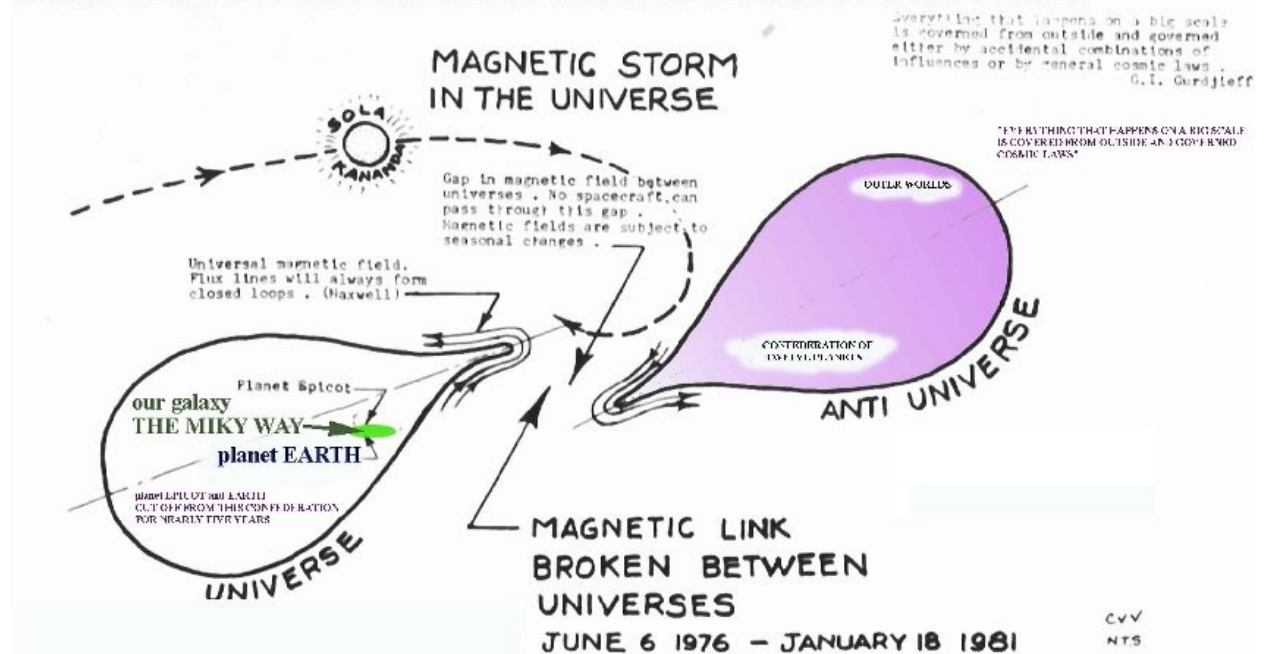 Everything that happens on a big scale
is governed from outside and governed
either by accidental combinations of
influences or by general cosmic laws .
G.I. Gurdjieff
MAGNETIC STORM
IN THE UNIVERSE
SOLA
KANANDA
"EVERYTHING THAT HAPPENS ON A BIG SCALE
IS COVERED FROM OUTSIDE AND GOVERNED
COSMIC LAWS"
Gap in magnetic field between
universes . No spacecraft can
pass through this gap .
Magnetic fields are subject to
seasonal changes .
OUTER WORLDS
Universal magnetic field.
Flux lines will always form
closed loops . (Maxwell)
CONFEDERATION OF
TWELVE PLANETS
ANTI UNIVERSE
Planet Epicot
our galaxy
THE MIKY WAY
planet EARTH
planet EPICOT and EARTH
CUT OFF FROM THIS CONFEDERATION
FOR NEARLY FIVE YEARS
UNIVERSE
MAGNETIC LINK
BROKEN BETWEEN
UNIVERSES
JUNE 6 1976 – JANUARY 18 1981
CVV
NTS